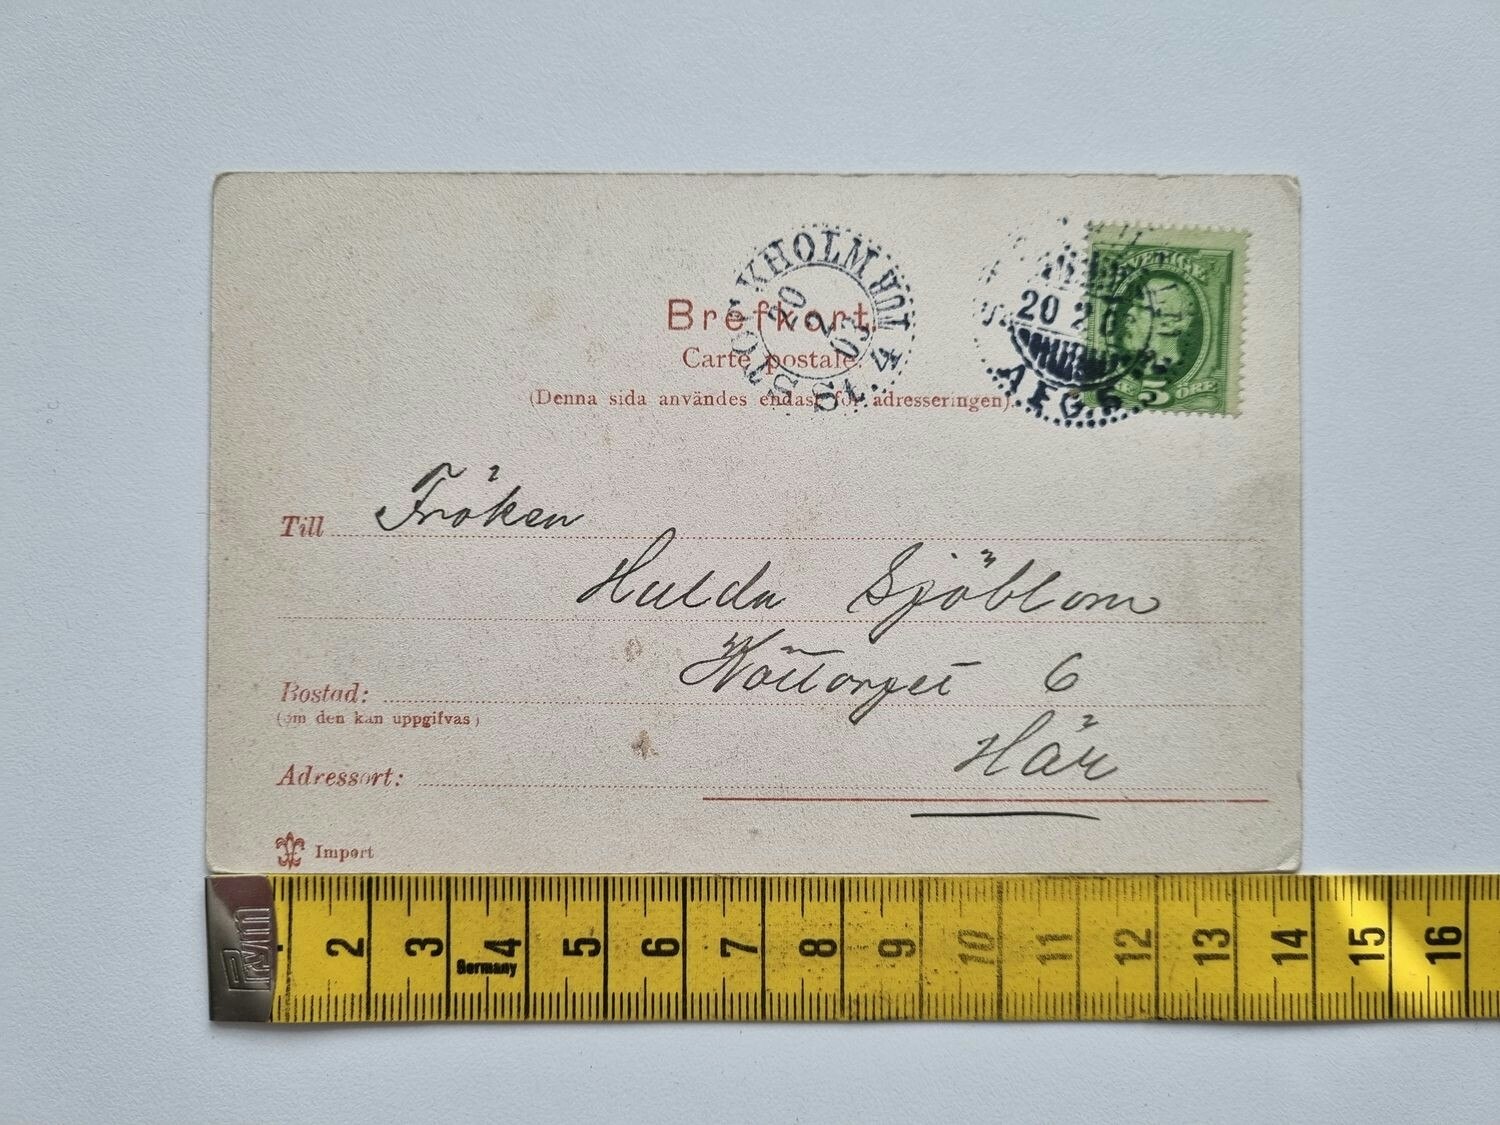 STOCKHOLM
20
2
03
SVERIGE
20 2
5 ÖRE
Brefkort
Carte postale.
(Denna sida användes endast för adresseringen).
Till Fröken
Hulda Sjöblom
6
Bostad:
(om den kan uppgifvas)
Här
Adressort:
Import
Prym
2 3 4 5 6 7 8 9 10 11 12 13 14 15 16
Germany